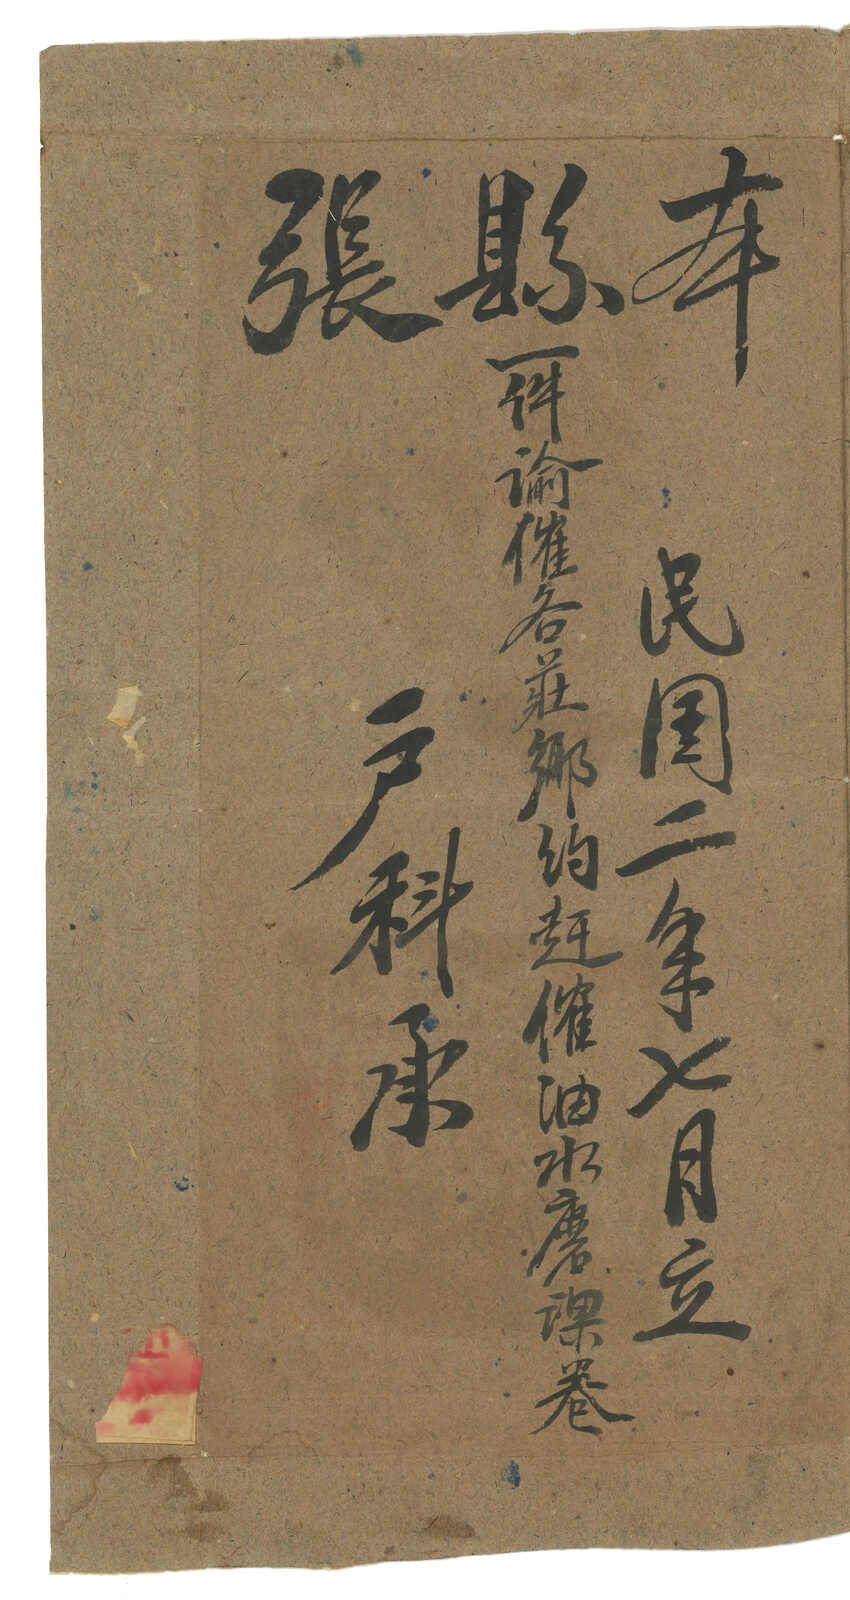 本縣張
民国二年七月立
一件諭催各莊鄉約赶催油水磨課卷
戶科承